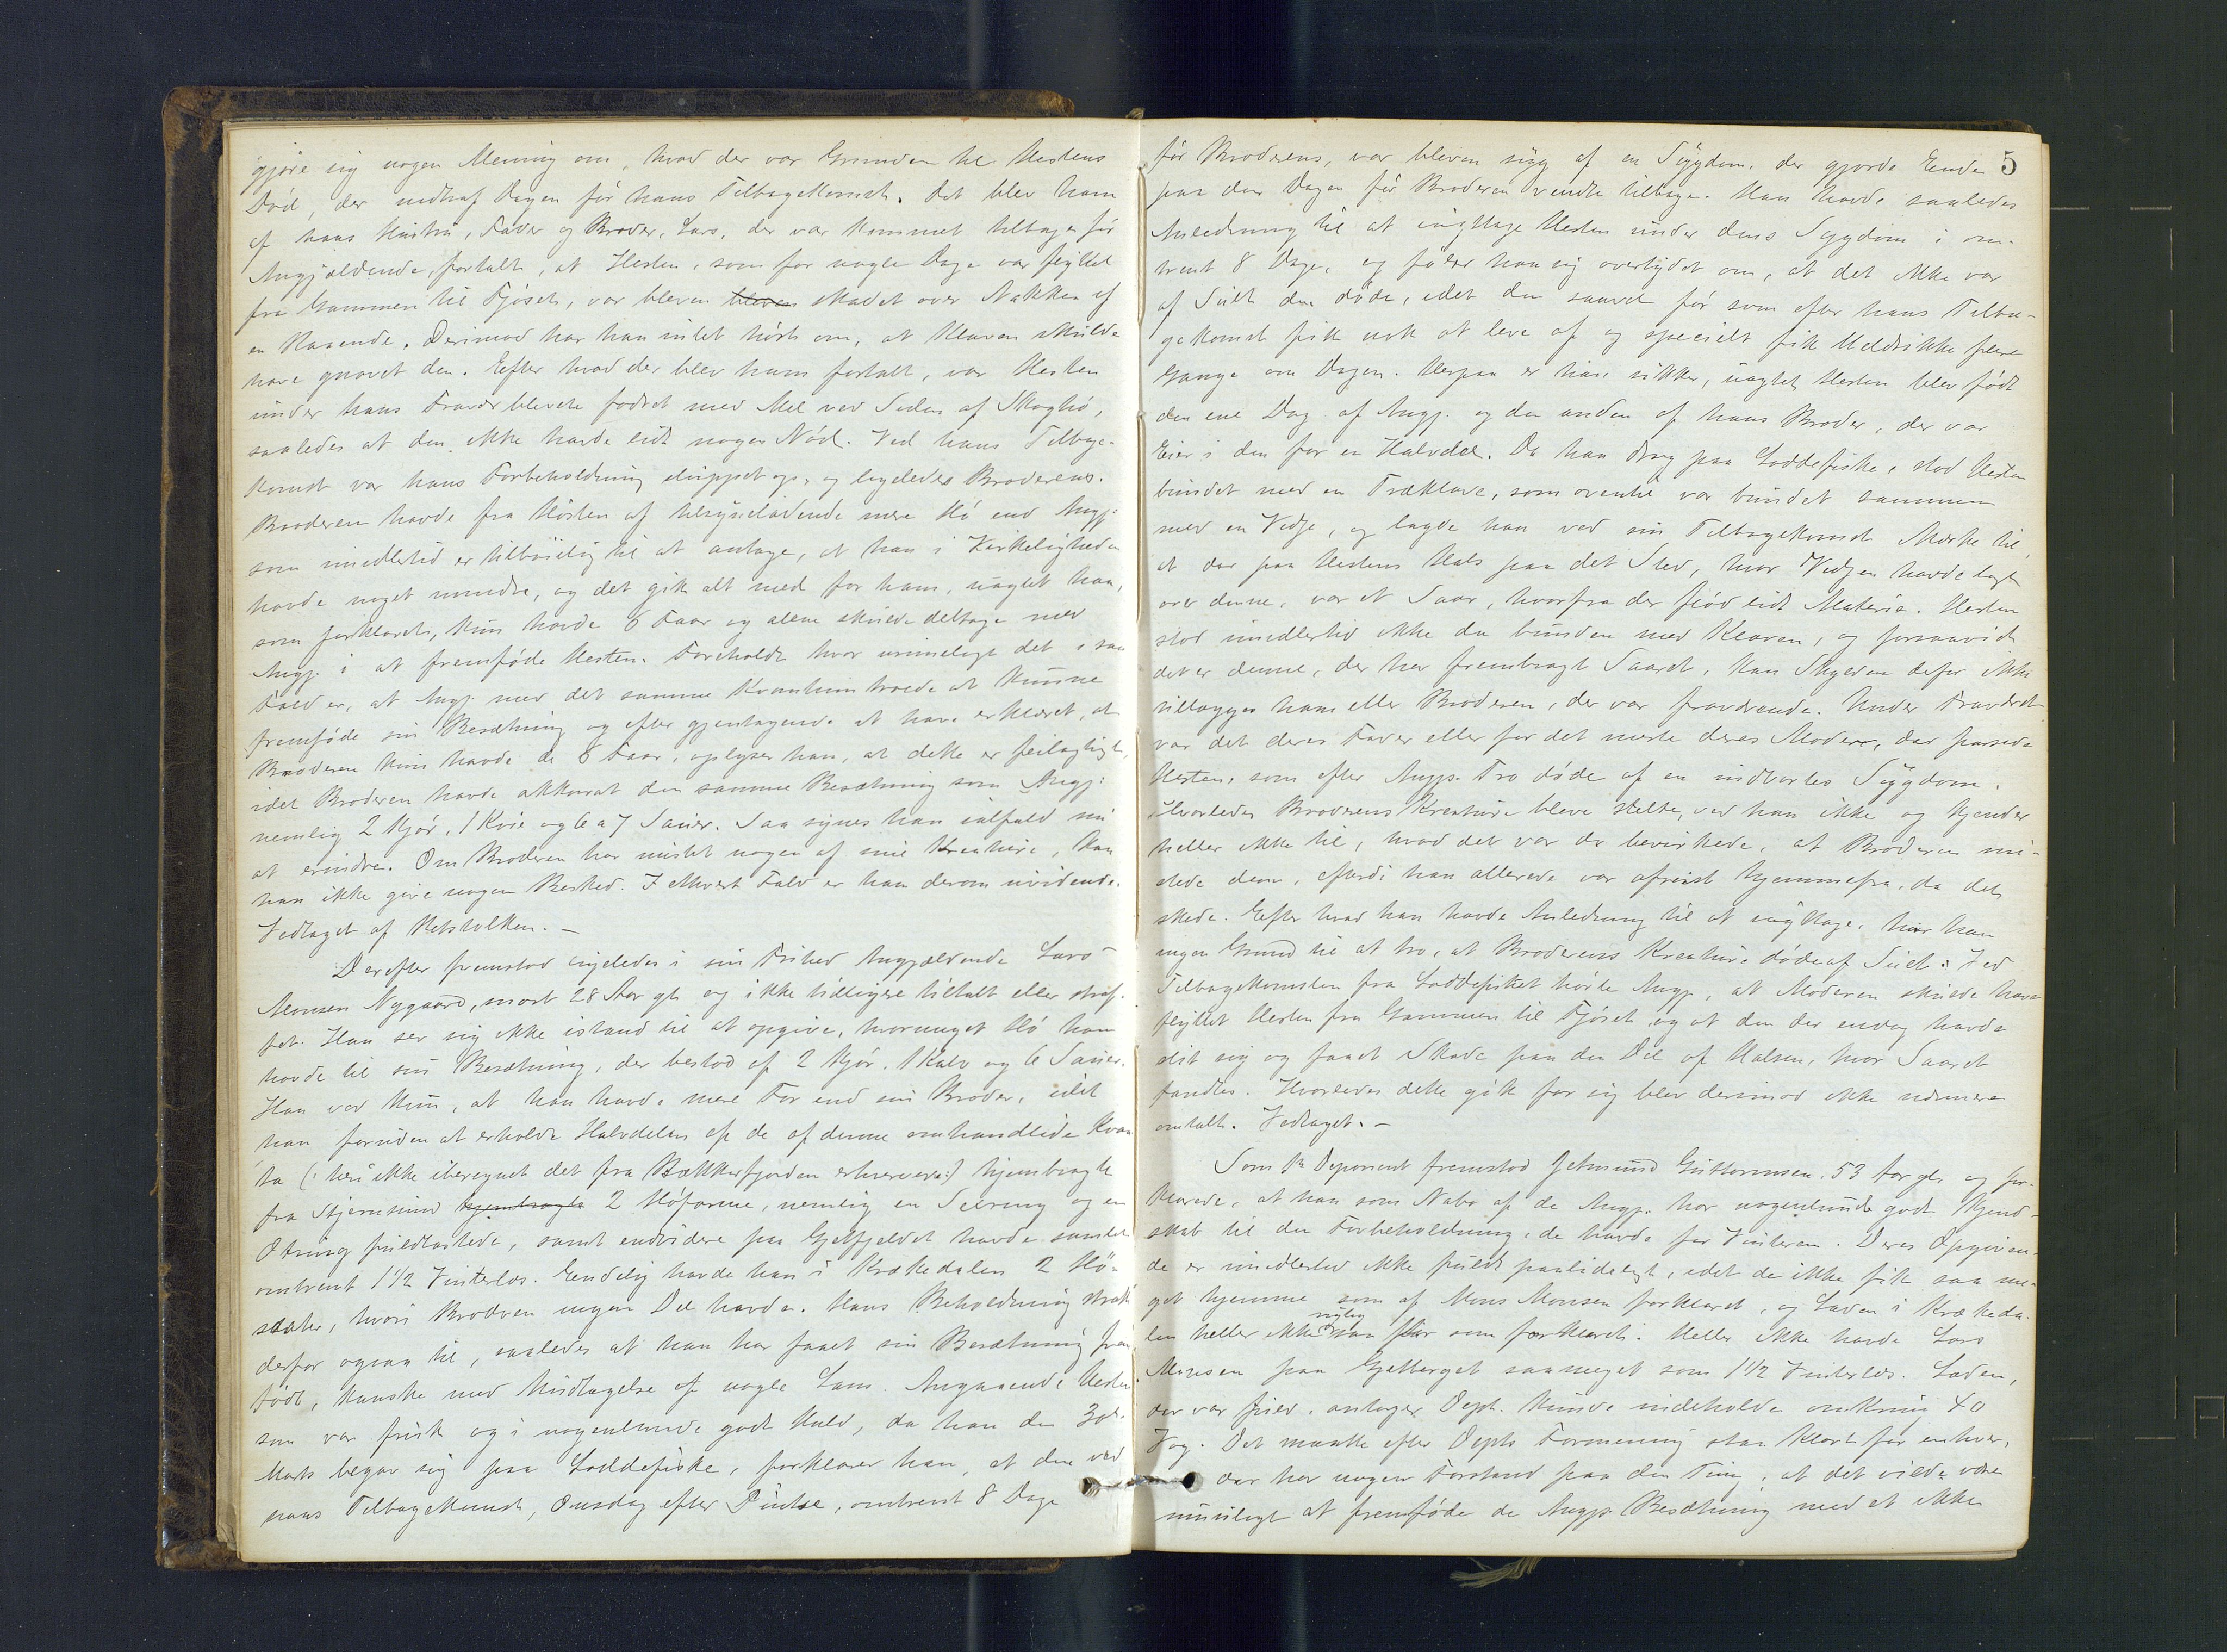 gjøre sig nogen Mening om, hvad der var Grunden til Hestens
Död, der indtraf Dagen för hans Tilbagekomst. Det blev ham
af hans Hustru, Fader og Broder, Lars, der var kommet tilbage för
Angjældende, fortalt, at Hesten, som for nogle Dage var flyttet
fra Gammen til Fjöset, var bleven skadet over Nakken af
en Raaende. Derimod har han intet hört om, at Klaven skulde
have gnavet den. Efter hvad der blev ham fortalt, var Hesten
under hans Fravær blevet fodret med Mel ved Siden af Skoghö,
saaledes at den ikke havde lidt nogen Nöd. Ved hans Tilbage-
komst var hans Forbeholdning sluppet op, og ligeledes Broderens.
Broderen havde fra Hösten af tilsyneladende mere Hö end Angj.
som imidlertid er tilböielig til at antage, at han i Virkeligheden
havde noget mindre, og det gik alt med for ham, uagtet han,
som forklaret, kun havde 6 Faar og alene skulde deltage med
Angj. i at fremföde Hesten. Foreholdt hvor urimeligt det i saa
Fald er, at Angj. med det samme Kvantum troede at kunne
fremföde sin Besætning og efter gjentagende at have erklæret, at
Broderen kun havde de 6 Faar, oplyser han, at dette er feilagtigt,
idet Broderen havde akkurat den samme Besætning som Angj:
nemlig 2 Kjör, 1 Kvie og 6 a 7 Sauer. Saa synes han ialfald nu
at erindre. Om Broderen har mistet nogen af sine Kreaturer, kan
han ikke give nogen Besked. I ethvert Fald er han derom uvidende.
Vedtaget af Retstolken. –
Derefter fremstod ligeledes i sin Frihed Angjældende Lars
Monsen Nygaard, snart 28 Aar gl. og ikke tidligere tiltalt eller straf-
fet. Han ser sig ikke istand til at opgive, hvormeget Hö han
havde til sin Besætning, der bestod af 2 Kjör, 1 Kalv og 6 Sauer.
Han ved kun, at han havde mere For end sin Broder, idet
han foruden at erholde Halvdelen af de af denne omhandlede Kvan-
ta (: heri ikke iberegnet det fra Bækkerfjorden erhvervede:) hjembragte
fra Stjernsund hjembragte 2 Höfarme, nemlig en Sexring og en
Otring fuldlastede, samt endvidere paa Gjetfjeldet havde samlet
omtrent 1 1/2 Vinterlæs. Endelig havde han i Krækedalen 2 Hö-
sæter, hvori Broderen ingen Del havde. Hans Beholdning strak
derfor ogsaa til, saaledes at han har faaet sin Besætning frem-
födt, kanske med Undtagelse af nogle Lam. Angaaende Hesten
som var frisk og i nogenlunde godt Huld, da han den 30te
Marts begav sig paa Loddefiske, forklarer han, at den ved
hans Tilbagekomst, Onsdag efter Pintse, omtrent 8 Dage
5
för Broderens, var bleven syg af en Sygdom, der gjorde Ende
paa den Dagen för Broderen vendte tilbage. Han havde saaledes
Anledning til at iagttage Hesten under dens Sygdom i om-
trent 8 Dage, og föler han sig overtydet om, at det ikke var
af Sult den döde, idet den saavel för som efter hans Tilba-
gekomst fik nok at leve af og specielt fik Meldrikke flere
Gange om Dagen. Herpaa er han sikker, uagtet Hesten blev födt
den ene Dag af Angj. og den anden af hans Broder, der var
Eier i den for en Halvdel. Da han drog paa Loddefiske, stod Hesten
bundet med en Træklave, som oventil var bundet sammen
med en Vidje, og lagde han ved sin Tilbagekomst Mærke til,
at der paa Hestens Hals paa det Sted, hvor Vidjen havde ligget
over denne, var et Saar, hvorfra der flöd lidt Materie. Hesten
stod imidlertid ikke da bunden med Klaven, og forsaavidt
det er denne, der har frembragt Saaret, kan Skylden derfor ikke
tillægges ham eller Broderen, der var fraværende. Under Fraværet
var det deres Fader eller for det meste deres Moder, der passede
Hesten, som efter Angjs. Tro döde af en indvortes Sygdom.
Hvorledes Broderens Kreaturer bleve stelte, ved han ikke og kjender
heller ikke til, hvad det var der bevirkede, at Broderen mi-
stede dem, efterdi han allerede var afreist hjemmefra, da det
skede. Efter hvad han havde Anledning til at iagttage, har han
ingen Grund til at tro, at Broderens Kreaturer döde af Sult. Ved
Tilbagekomsten fra Loddefisket hörte Angj., at Moderen skulde have
flyttet Hesten fra Gammen til Fjöset og at den der endog havde
slidt sig og faaet Skade paa den Del af Halsen, hvor Saaret
fandtes. Hvorledes dette gik for sig blev derimod ikke nærmere
omtalt. Vedtaget. –
Som 1ste Deponent fremstod Jetmund Guttormsen, 53 Aar gl. og for-
klarede, at han som Nabo af de Angj. har nogenlunde godt Kjend-
skab til den Forbeholdning, de havde for Vinteren. Deres Opgiven-
de er imidlertid ikke fuldt paalideligt, idet de ikke fik saa me-
get hjemme som af Mons Monsen forklaret, og Laden i Krækeda-
rigtig
len heller ikke saa stor som forklaret. Heller ikke havde Lars
Monsen paa Gjetberget saameget som 1 1/2 Vinterlæs. Laden,
der var fuld, antager Dept. kunde indeholde omkring 40
Vog. Det maatte efter Depts Formening staa klart for enhver,
der har nogen Forstand paa den Ting, at det vilde være
umuligt at fremföde de Angjs Besætning med et ikke